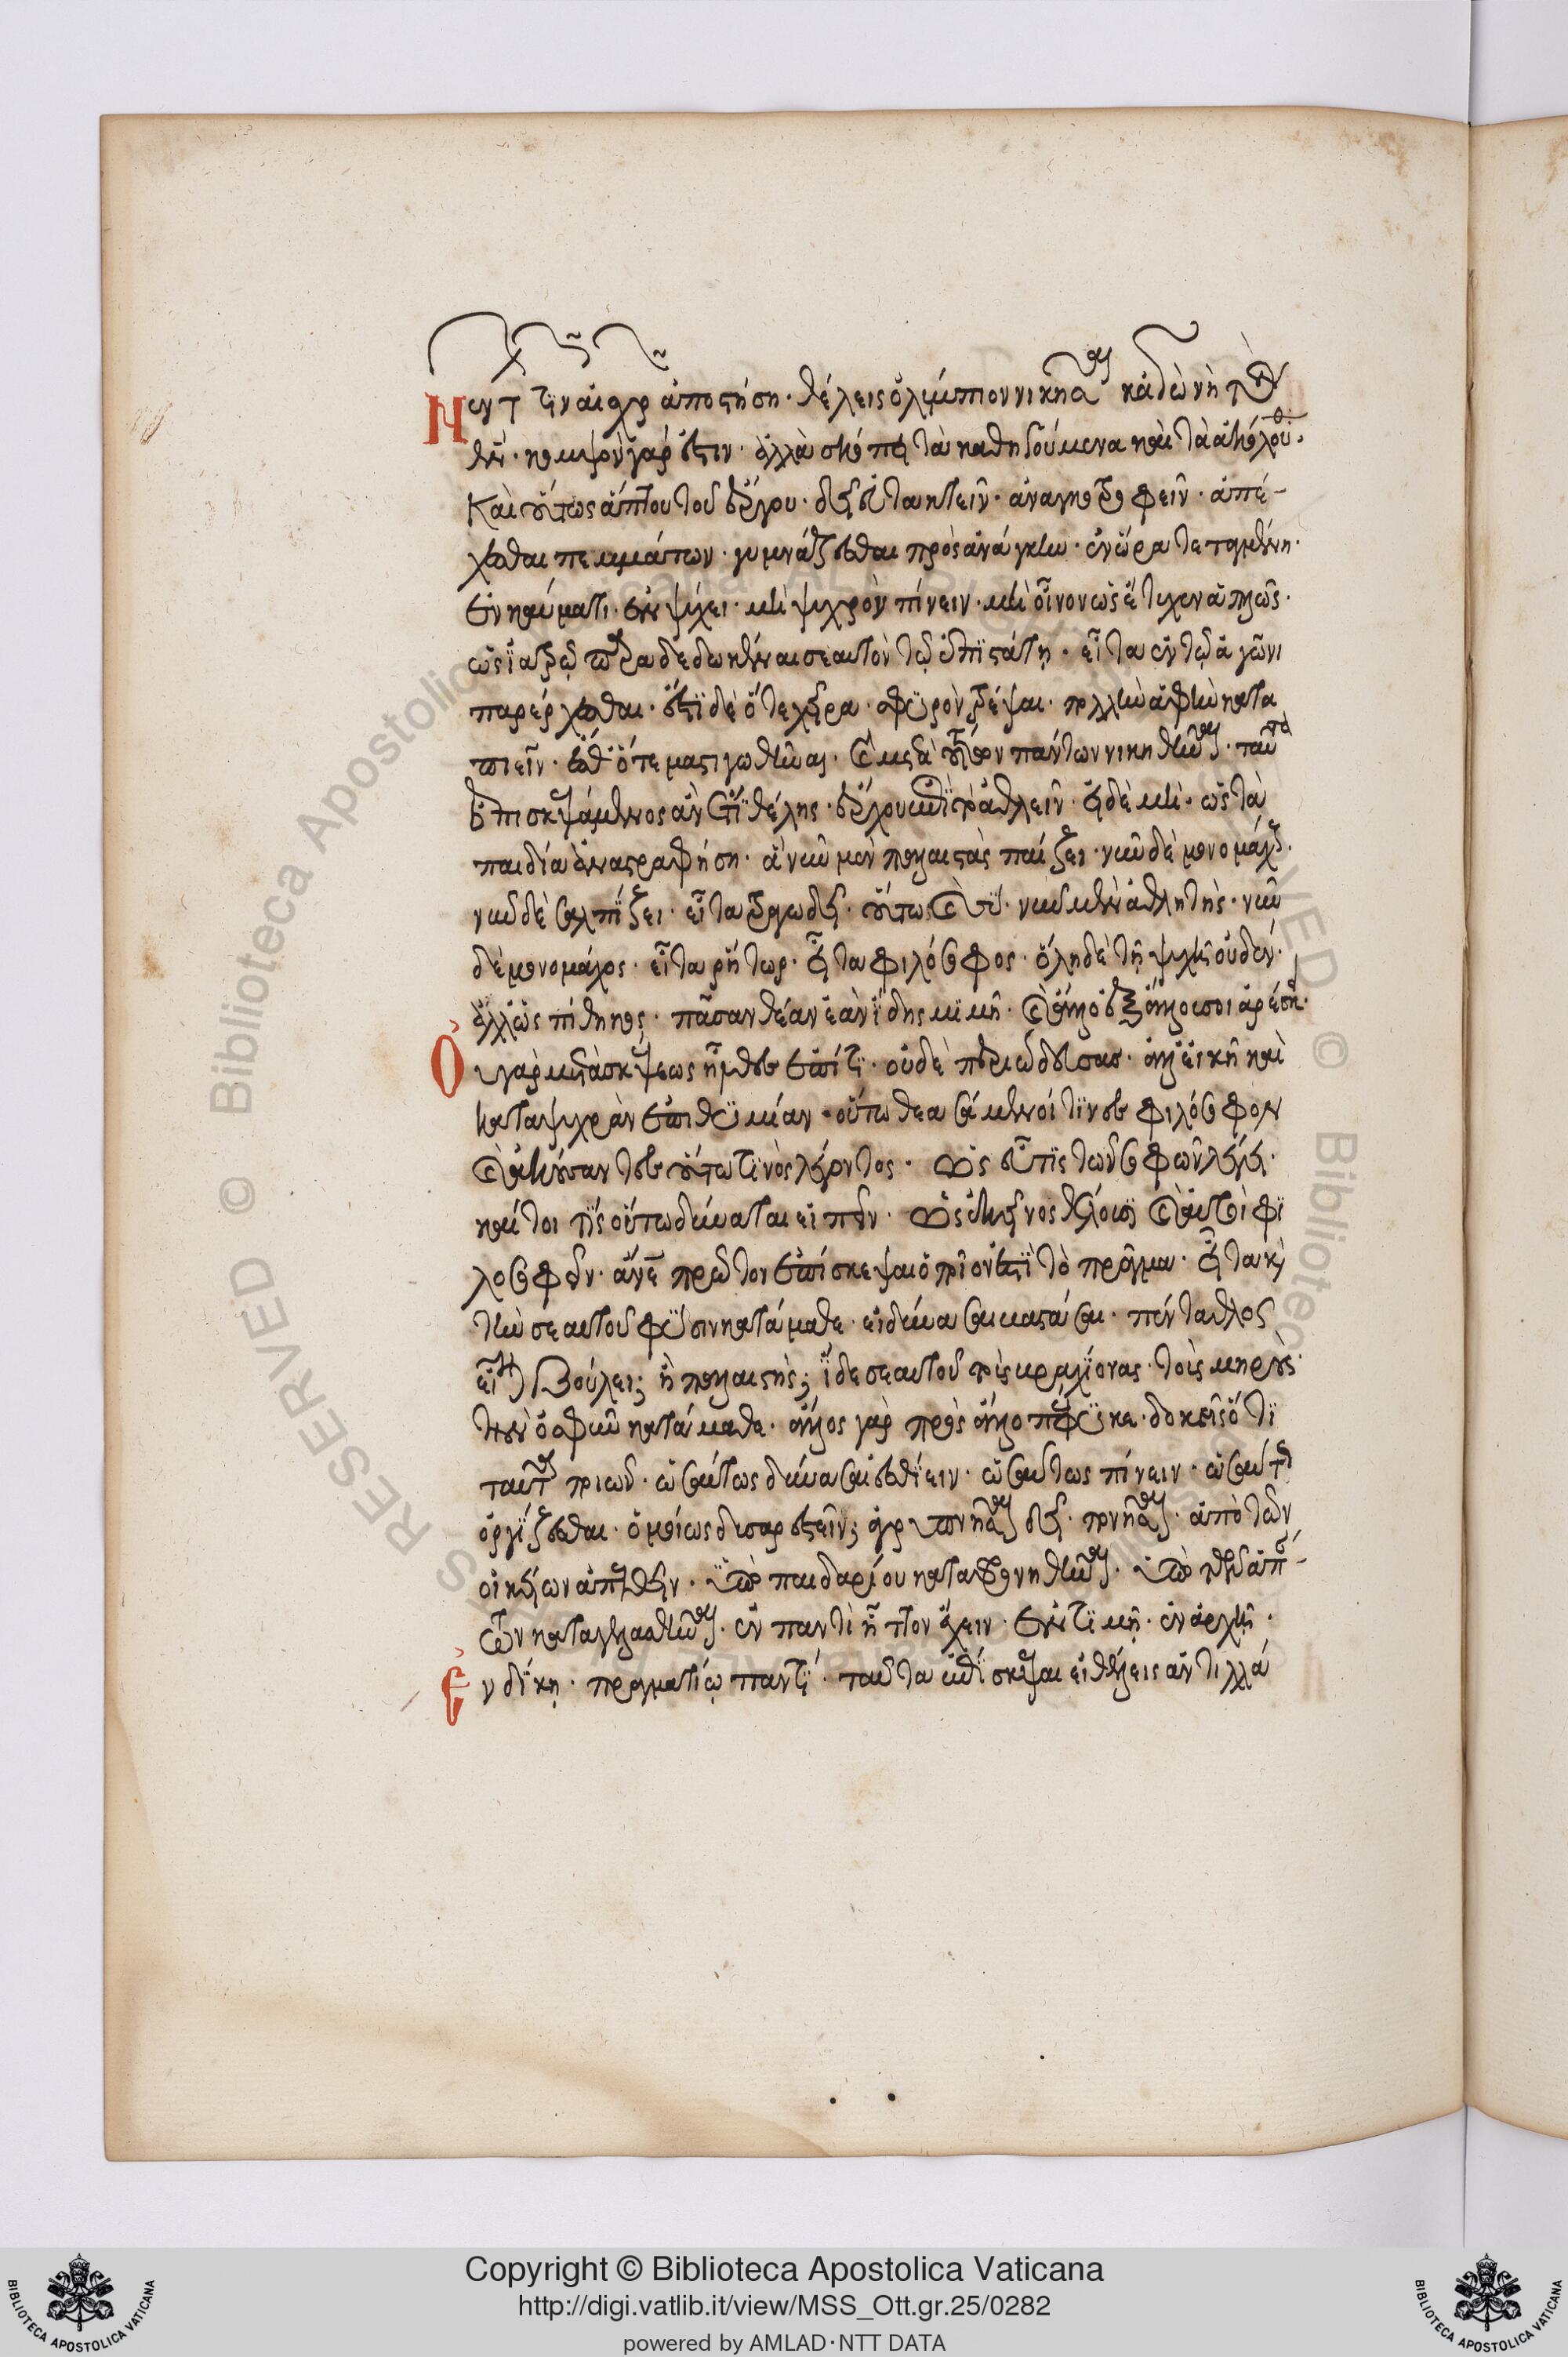 Νεντ τιν αἰσχρ ἀποστήση· θέλεις ὀλύμπιον νικῆσαι κἀγὼ νὴ τοὺς
θεούς· κομψὸν γάρ ἐστιν· ἀλλὰ σκόπει τὰ καθηγούμενα καὶ τὰ ἀκόλουθα·
Καὶ οὕτως ἅπτου τοῦ ἔργου· δεῖ σ' εὐτακτεῖν· ἀναγκοτροφεῖν· ἀπέ-
χεσθαι πεμμάτων· γυμνάζεσθαι πρὸς ἀνάγκην· ἐν ὥρα τεταγμένη·
ἐν καύματι· ἐν ψύχει· μὴ ψυχρὸν πίνειν· μὴ οἶνον ὡς ἔτυχεν ἁπλῶς·
ὡς ἰατρῷ παραδεδωκέναι σεαυτὸν τῷ ἐπιστάτη· εἶτα ἐν τῷ ἀγῶνι
παρέρχεσθαι· ἔστι δὲ ὅτε χεῖρα· σφυρὸν στρέψαι· πολλὴν ἀφὴν κατα
πιεῖν· ἔσθ' ὅτε μαστιγωθῆναι· καὶ μετὰ τούτων πάντων νικηθῆναι· ταῦτα
ἐπισκεψάμενος ἂν ἔτι θέλης· ἔρχου ἐπὶ τὸ ἀθλεῖν· εἰ δὲ μὴ· ὡς τὰ
παιδία ἀναστραφήση· ἃ νῦν μὲν παλαιστὰς παίζει· νῦν δὲ μονομάχους·
νῦν δὲ σαλπίζει· εἶτα τραγωδεῖ· οὕτω καὶ σὺ· νῦν μὲν ἀθλητὴς· νῦν
δὲ μονομάχος· εἶτα ῥήτωρ· εἶτα φιλόσοφος· ὅλη δὲ τῆ ψυχῆ οὐδέν·
ἀλλ' ὡς πίθηκος· πᾶσαν θέαν ἐὰν ἴδης μιμῆ· καὶ ἄλλο ἐξ ἄλλου σοι ἀρέσκει·
Οὐ γὰρ μετὰ σκέψεως ἦλθες ἐπί τι· οὐδὲ περιοδεύσας· ἀλλ' εἰκῆ καὶ
κατὰ ψυχρὰν ἐπιθυμίαν· οὕτω θεασάμενοί τινες φιλόσοφον
καὶ ἀκούσαντες οὕτω τινὸς λέγοντος· ὡς εὖ τις τῶν σοφῶν λέγει·
καίτοι τίς οὕτω δύναται εἰπεῖν· ὡς ἐκεῖνος θέλουσι καὶ αὐτοὶ φι
λοσοφεῖν· ἄνε πρῶτον ἐπίσκεψαι ὁποῖόν ἐστι τὸ πρᾶγμα· εἶτα καὶ
τὴν σεαυτοῦ φύσιν κατάμαθε· εἰ δύνασαι βαστάσαι· πένταθλος
εἶναι βούλει; ἢ παλαιστής; ἴδε σεαυτοῦ τοὺς βραχίονας· τοὺς μηρούς·
τὴν ὀσφὺν κατάμαθε· ἄλλος γὰρ πρὸς ἄλλο πέφυκε· δοκεῖς ὅτι
ταῦτα ποιῶν· ὡσαύτως δύνασαι ἐσθίειν· ὡσαύτως πίνειν· ὡσαύτως
ὀργίζεσθαι· ὁμοίως δυσαρεστεῖν; ἀγρυπνῆσαι δεῖ· πονῆσαι· ἀπὸ τῶν
οἰκείων ἀπελθεῖν· ὑπὸ παιδαρίου καταφρονηθῆναι· ὑπὸ τῶν ἀπ-
των καταγελασθῆναι· ἐν παντὶ ἧττον ἔχειν· ἐν τιμῆ· ἐν ἀρχῆ·
ἐν δίκη· πραγματίῳ παντί· ταῦτα ἐπίσκεψαι εἰ θέλεις ἀντιλλά
Copyright © Biblioteca Apostolica Vaticana
http://digi.vatlib.it/view/MSS_Ott.gr.25/0282
powered by AMLAD·NTT DATA